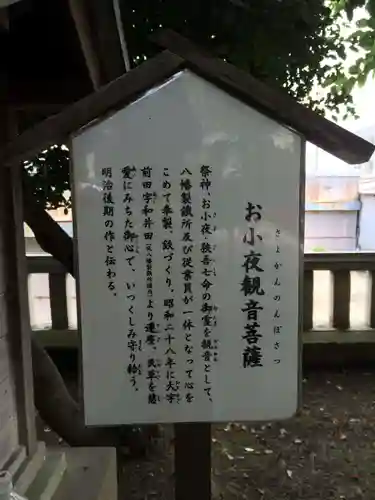 お小夜観音菩薩
さよかんのんぼさつ
祭神、お小夜・狭吾七命の御霊を観音として、
八幡製鉄所及び従業員が一体となって心を
こめて奉製、鉄づくり。昭和二十八年に大字
前田字和井田より遷座、民草を慈
愛にみちた御心で、いつくしみ守り給う。
明治後期の作と伝わる。